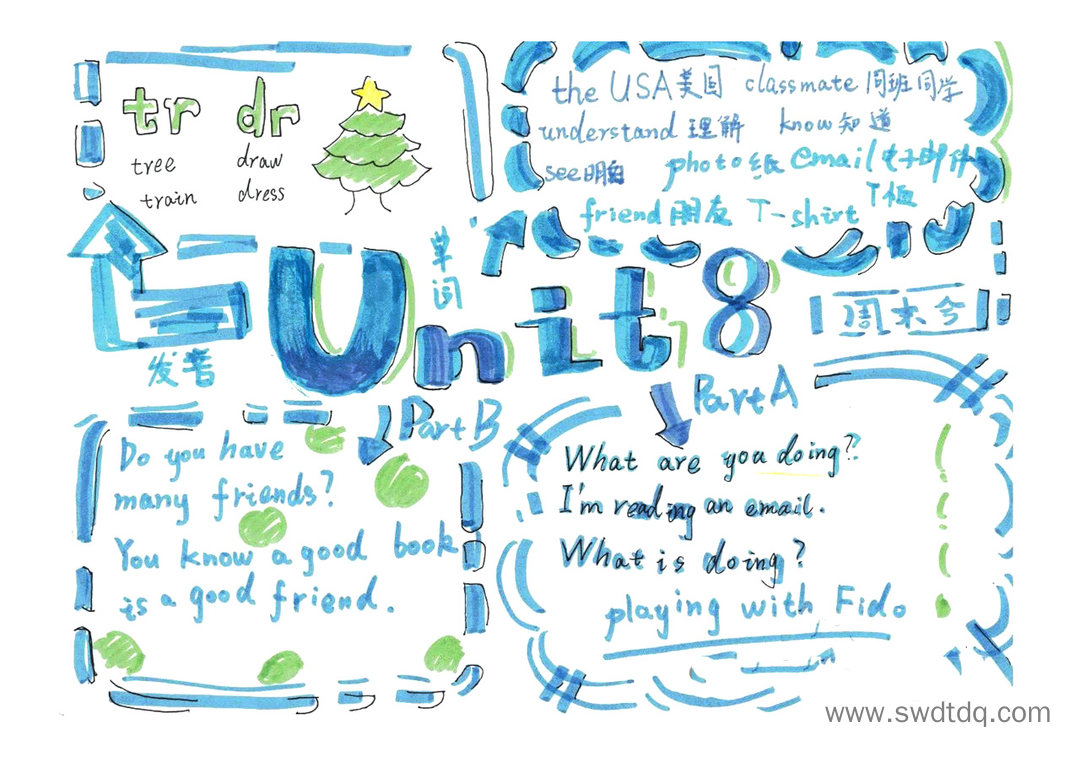 tr dr
tree draw
train dress
the USA美国 classmate同班同学
understand 理解 know知道
see明白 photo email电子邮件
friend朋友 T-shirt T恤
单词
Unit 8
周末兮
发音
Part B
Part A
Do you have
many friends?
You know a good book
is a good friend.
What are you doing?
I'm reading an email.
What is doing?
playing with Fido
www.swdtdq.com